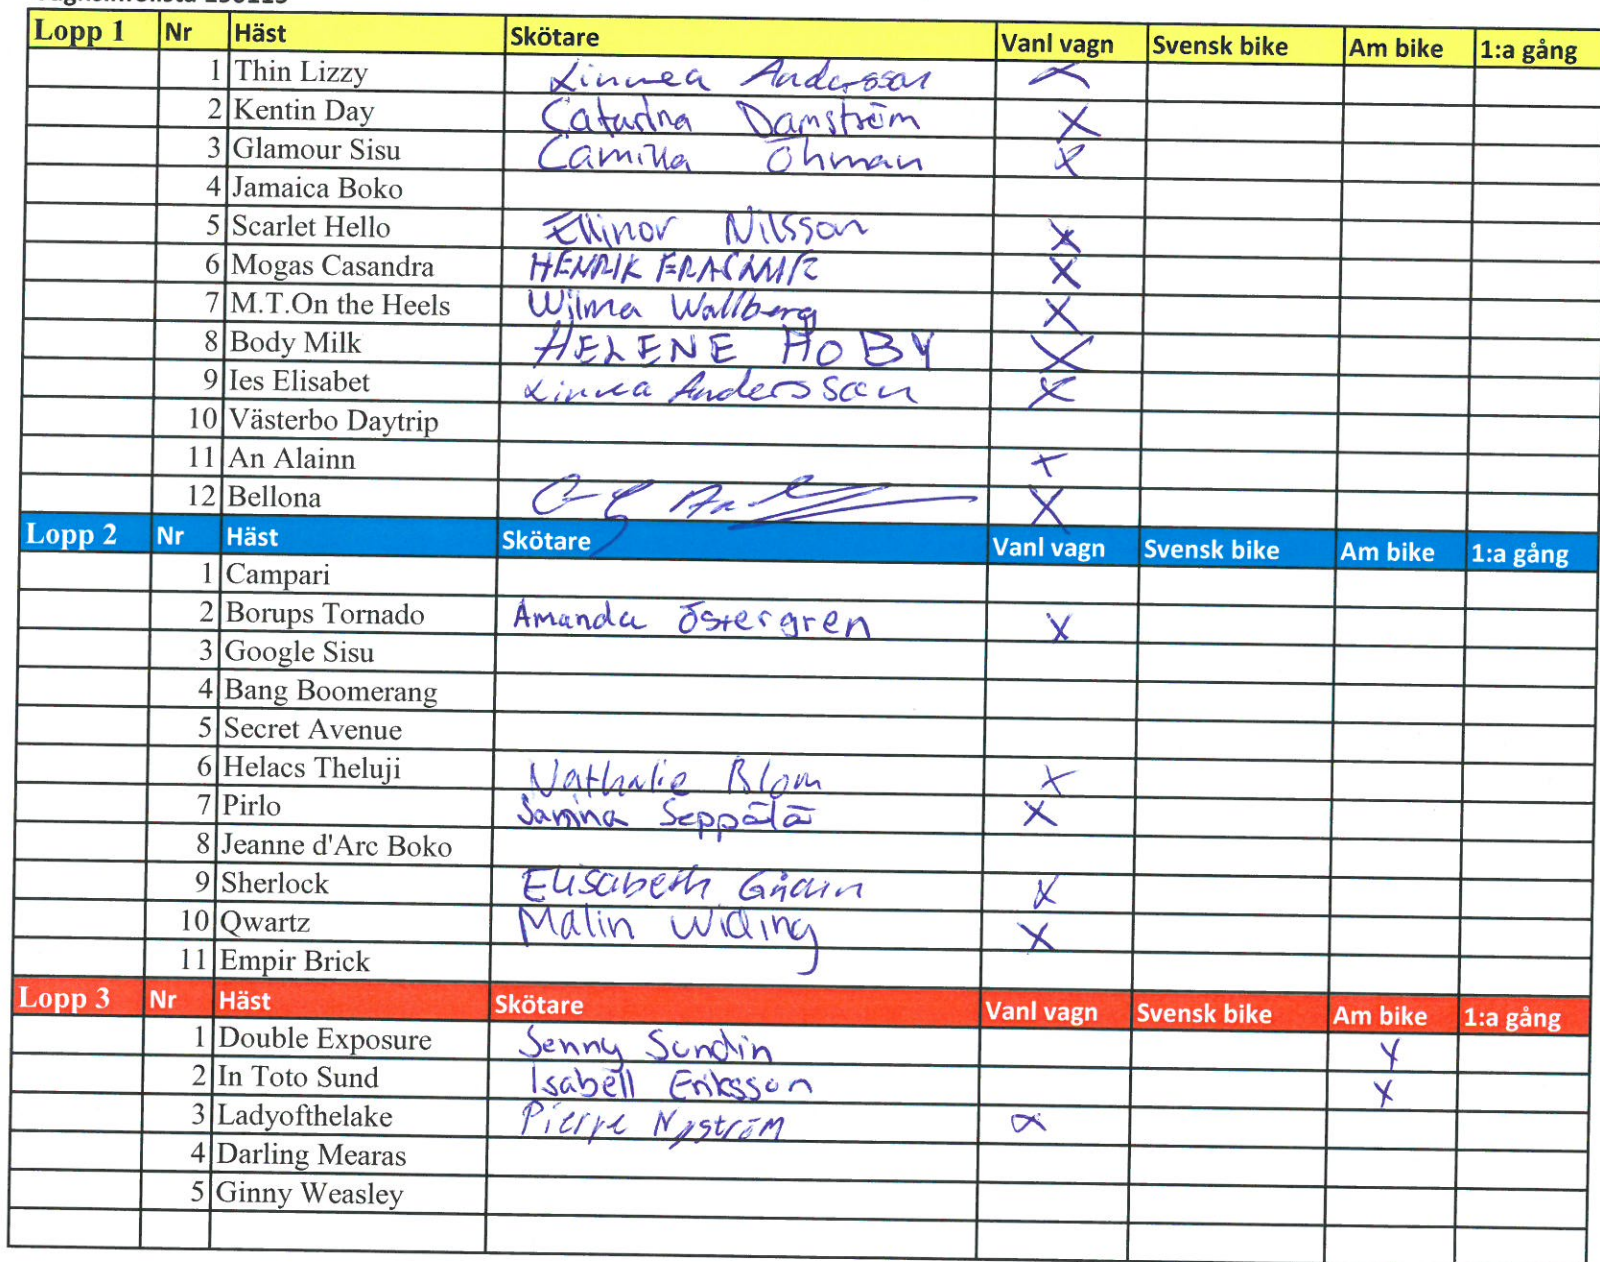 Lopp 1 Nr Häst Skötare Vanl vagn Svensk bike Am bike 1:a gång
1 Thin Lizzy Linnea Andersson X
2 Kentin Day Catarina Damström X
3 Glamour Sisu Camilla Öhman X
4 Jamaica Boko
5 Scarlet Hello Ellinor Nilsson X
6 Mogas Casandra HENRIK X
7 M.T.On the Heels Wilma Wallberg X
8 Body Milk HELENE HOBY X
9 Ies Elisabet Linnea Andersson X
10 Västerbo Daytrip
11 An Alainn X
12 Bellona X
Lopp 2 Nr Häst Skötare Vanl vagn Svensk bike Am bike 1:a gång
1 Campari
2 Borups Tornado Amanda Östergren X
3 Google Sisu
4 Bang Boomerang
5 Secret Avenue
6 Helacs Theluji Nathalie Blom X
7 Pirlo Sanna Seppälä X
8 Jeanne d'Arc Boko
9 Sherlock Elisabeth Gådin X
10 Qwartz Malin Widing X
11 Empir Brick
Lopp 3 Nr Häst Skötare Vanl vagn Svensk bike Am bike 1:a gång
1 Double Exposure Jenny Sundin X
2 In Toto Sund Isabell Eriksson X
3 Ladyofthelake Pierre Nyström X
4 Darling Mearas
5 Ginny Weasley